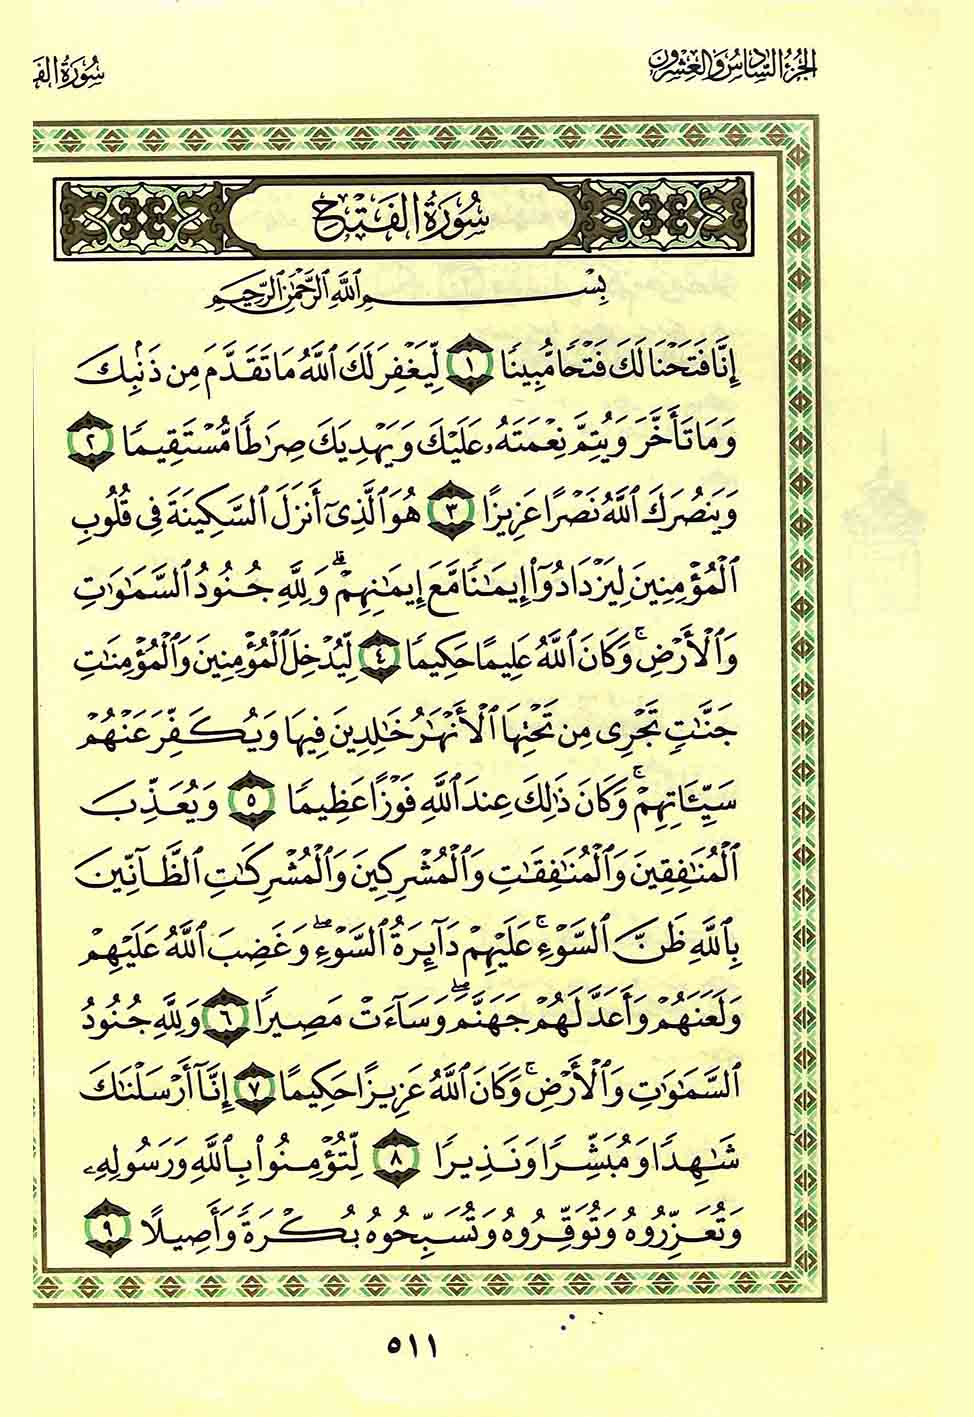 الجزء السادس والعشرون
سُورَةُ الفَ
سُورَةُ الفَتْحِ
بِسْمِ ٱللَّهِ ٱلرَّحْمَٰنِ ٱلرَّحِيمِ
إِنَّا فَتَحْنَا لَكَ فَتْحًا مُّبِينًا ١ لِّيَغْفِرَ لَكَ ٱللَّهُ مَا تَقَدَّمَ مِن ذَنۢبِكَ
وَمَا تَأَخَّرَ وَيُتِمَّ نِعْمَتَهُۥ عَلَيْكَ وَيَهْدِيَكَ صِرَٰطًا مُّسْتَقِيمًا ٢
وَيَنصُرَكَ ٱللَّهُ نَصْرًا عَزِيزًا ٣ هُوَ ٱلَّذِىٓ أَنزَلَ ٱلسَّكِينَةَ فِى قُلُوبِ
ٱلْمُؤْمِنِينَ لِيَزْدَادُوٓا۟ إِيمَٰنًا مَّعَ إِيمَٰنِهِمْ ۗ وَلِلَّهِ جُنُودُ ٱلسَّمَٰوَٰتِ
وَٱلْأَرْضِ ۚ وَكَانَ ٱللَّهُ عَلِيمًا حَكِيمًا ٤ لِّيُدْخِلَ ٱلْمُؤْمِنِينَ وَٱلْمُؤْمِنَٰتِ
جَنَّٰتٍ تَجْرِى مِن تَحْتِهَا ٱلْأَنْهَٰرُ خَٰلِدِينَ فِيهَا وَيُكَفِّرَ عَنْهُمْ
سَيِّـَٔاتِهِمْ ۚ وَكَانَ ذَٰلِكَ عِندَ ٱللَّهِ فَوْزًا عَظِيمًا ٥ وَيُعَذِّبَ
ٱلْمُنَٰفِقِينَ وَٱلْمُنَٰفِقَٰتِ وَٱلْمُشْرِكِينَ وَٱلْمُشْرِكَٰتِ ٱلظَّآنِّينَ
بِٱللَّهِ ظَنَّ ٱلسَّوْءِ ۚ عَلَيْهِمْ دَآئِرَةُ ٱلسَّوْءِ ۖ وَغَضِبَ ٱللَّهُ عَلَيْهِمْ
وَلَعَنَهُمْ وَأَعَدَّ لَهُمْ جَهَنَّمَ ۖ وَسَآءَتْ مَصِيرًا ٦ وَلِلَّهِ جُنُودُ
ٱلسَّمَٰوَٰتِ وَٱلْأَرْضِ ۚ وَكَانَ ٱللَّهُ عَزِيزًا حَكِيمًا ٧ إِنَّآ أَرْسَلْنَٰكَ
شَٰهِدًا وَمُبَشِّرًا وَنَذِيرًا ٨ لِّتُؤْمِنُوا۟ بِٱللَّهِ وَرَسُولِهِۦ
وَتُعَزِّرُوهُ وَتُوَقِّرُوهُ وَتُسَبِّحُوهُ بُكْرَةً وَأَصِيلًا ٩
٥١١